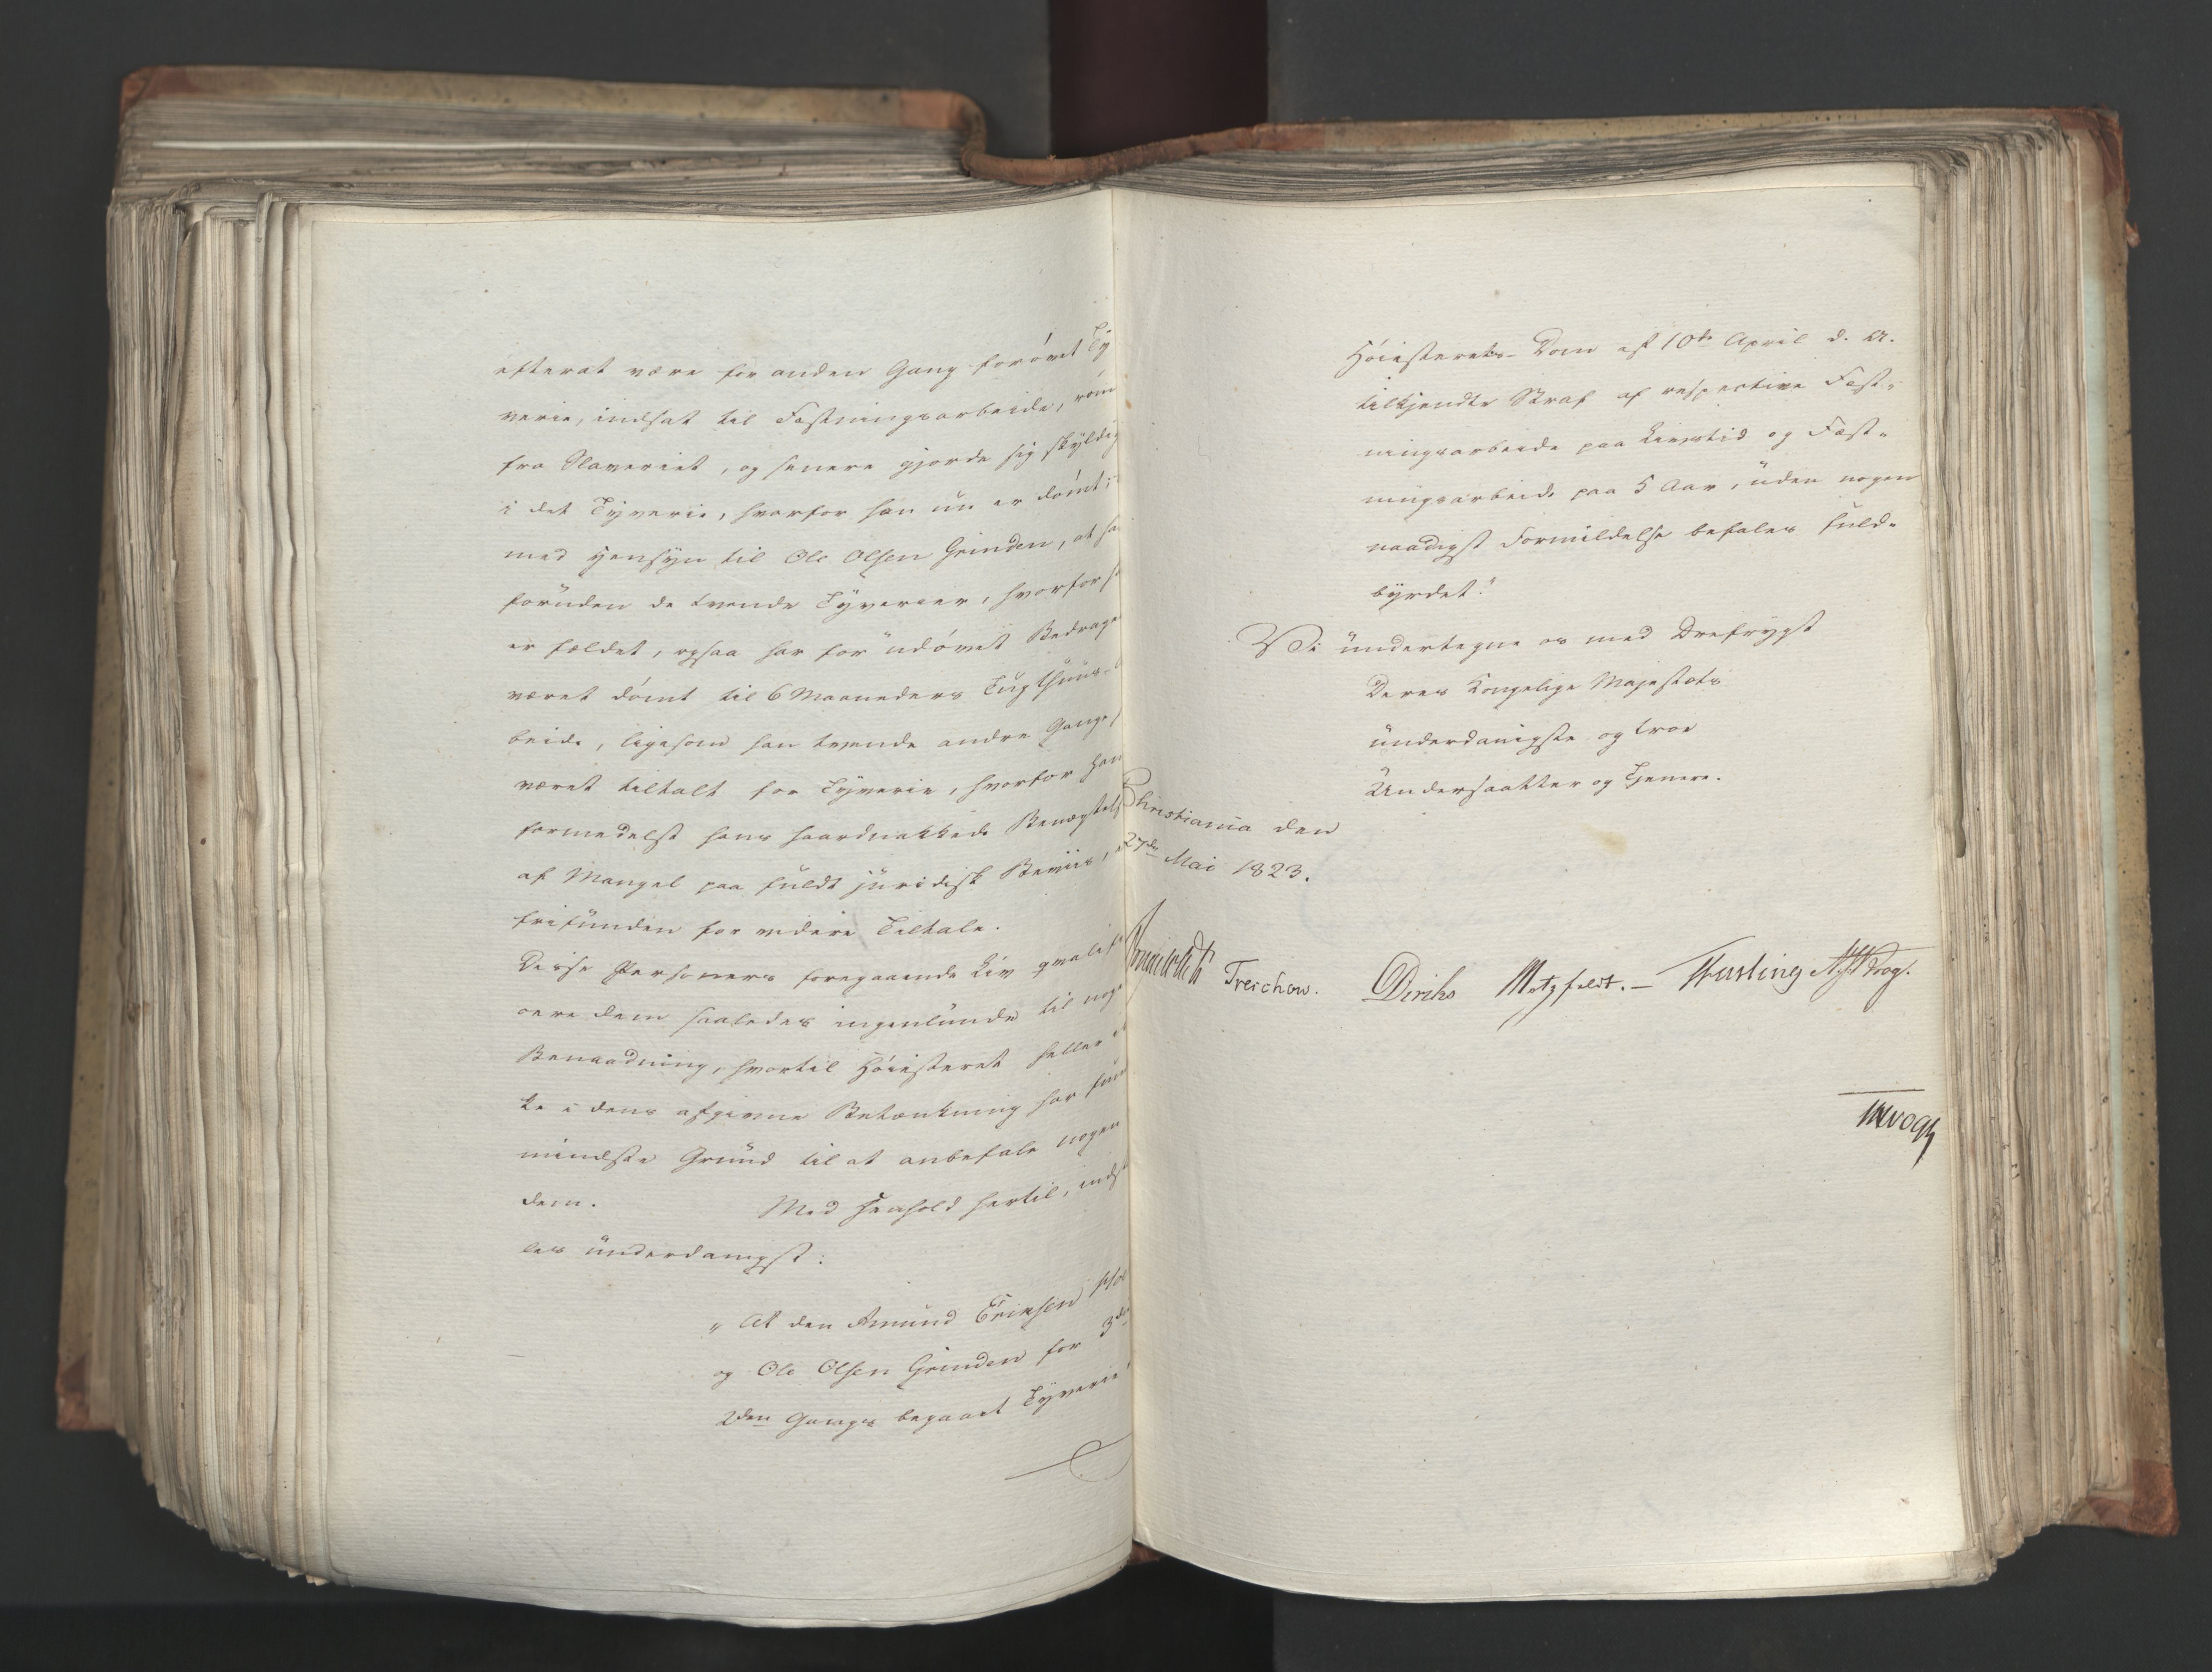 efterat være for anden Gang forövet Ty
verie, indsat til Fæstningsarbeide, röm
fra Slaveriet, og senere gjorde sig skÿldig
i det Tÿverie, hvorfor han nu er dömt;
med Hensÿn til Ole Olsen Grinden, at ha
foruden de tvende Tÿverier, hvorfor h
er fældet, ogsaa har for udövet Bedrage
været dömt til 6 Maaneders Tugthuus-
beide, ligesom han tvende andre Gange
været tiltalt for Tÿverie, hvorfor han
formedelst hans haardnakkede Benægtels
af Mangel paa fuldt juridisk Beviis,
frifunden for videre Tiltale.
Disse Personers foregaaende Liv qvalif
cere dem saaledes ingenlunde til noge
Benaadning, hvortil Höiesteret heller
ke i dens afgivne Betænkning har fun
mindste Grund til at anbefale nogen
dem. Med Henhold hertil, inds
les underdanigst:
„At den Amund Eriksen
og Ole Olsen Grinden for 3de
2den Gangs begaaet Tÿverie
Höiesterets-Dom af 10de April d. A.
tilkjendte Straf af respective Fæst-
ningsarbeide paa Livstid og Fæst-
ningsarbeide paa 5 Aar, uden nogen
naadigst Formildelse befales fuld-
bÿrdet."
Vi undertegne os med Dÿbefrygt
Deres Kongelige Majestæts
underdanigste og troe
Undersaatter og Tjenere.
Christiania den
27de Mai 1823.
Treschow. Diriks Motzfeldt. Fasting